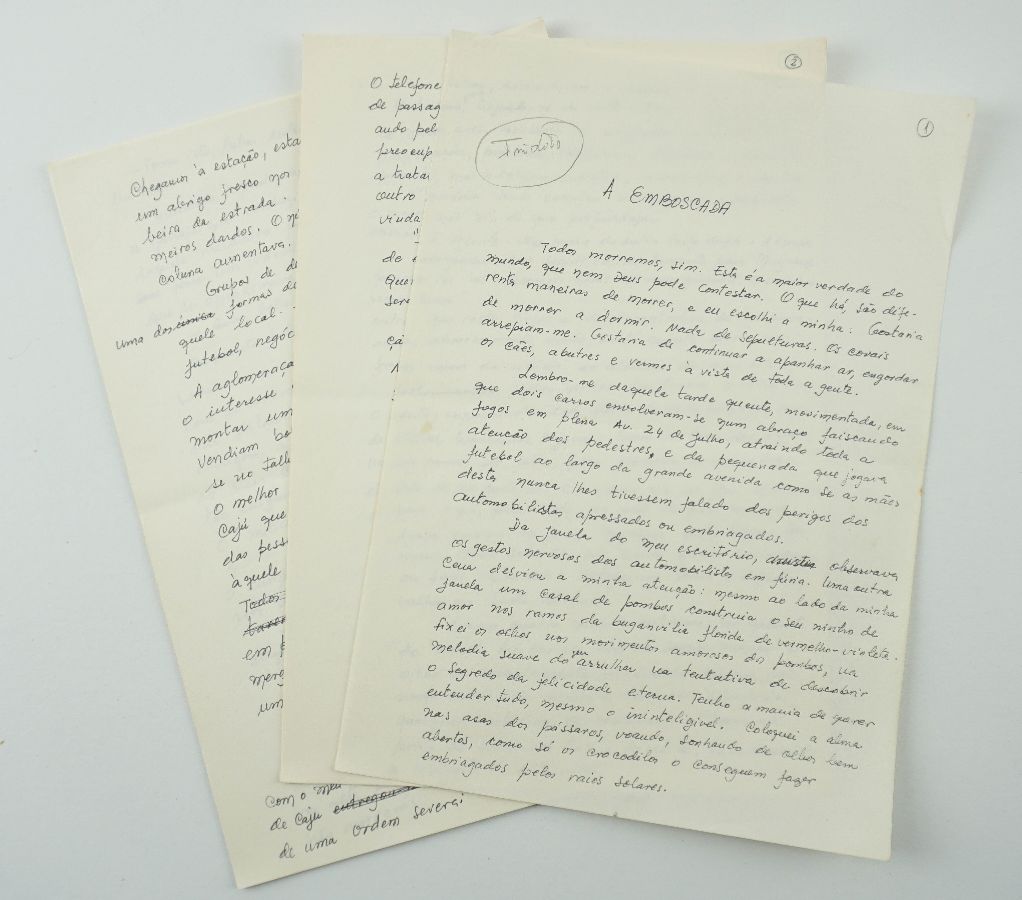 1
Inédito
A EMBOSCADA
Todos morremos, sim. Esta é a maior verdade do
mundo, que nem Deus pode contestar. O que há, são dife-
rentes maneiras de morrer, e eu escolhi a minha. Gostaria
de morrer a dormir. Nada de sepulturas. Os covais
arrepiam-me. Gostaria de continuar a apanhar ar, engordar
os cães, abutres e vermes à vista de toda a gente.
Lembro-me daquela tarde quente, movimentada, em
que dois carros envolveram-se num abraço faiscando
fogos em plena Av. 24 de Julho, atraindo toda a
atenção dos pedestres, e da pequenada que jogava
futebol ao largo da grande avenida como se as mães
destes nunca lhes tivessem falado dos perigos dos
automobilistas apressados ou embriagados.
Da janela do meu escritório, observava
os gestos nervosos dos automobilistas em fúria. Uma outra
cena desviou a minha atenção: mesmo ao lado da minha
janela um casal de pombos construia o seu ninho de
amor nos ramos da buganvília florida de vermelho-violeta.
fixei os olhos nos movimentos amorosos dos pombos, na
melodia suave do seu arrulhar na tentativa de descobrir
o segredo da felicidade eterna. Tenho a mania de querer
entender tudo, mesmo o ininteligível. Coloquei a alma
nas asas dos pássaros, voando, sonhando de olhos bem
abertos, como só os crocodilos o conseguem fazer
embriagados pelos raios solares.
2
O telefone
de passag
ando pel
preocup
a tratar
outro
vinda
de
Quer
sere
Chegamos à estação, esta
um abrigo fresco nos
beira da estrada.
meiros dardos. O nú
coluna aumentava.
Grupos de de
uma das única formas de
quele local.
futebol, negóc
A aglomeraca
o interesse
montar um
Vendiam be
se no falh
O melhor
Cajú que
das pess
àquele
Todos
em
merg
um
com o meu
de Cajú entregou
de uma ordem severa!